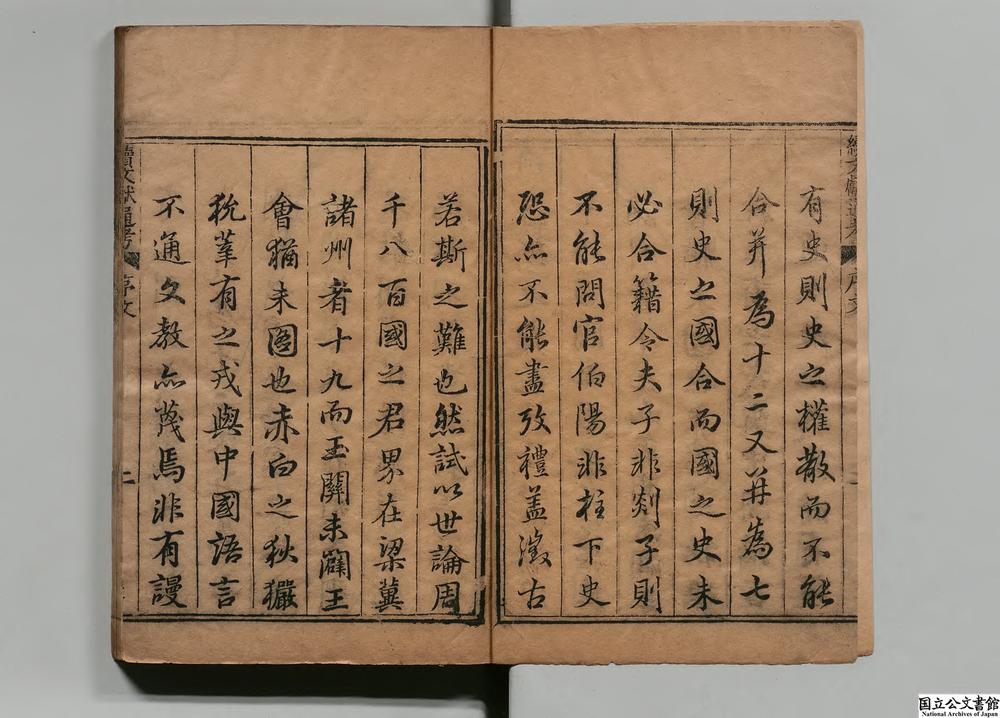 續文獻通考 序文
有史則史之權散而不能
合并為十二又并為七
則史之國合而國之史未
必合籍令夫子非郯子則
不能問官伯陽非柱下史
恐亦不能盡攷禮盖徵古
若斯之難也然試以世論周
千八百國之君界在梁冀
諸州者十九而玉關未闢王
會猶未圖也赤白之狄玁
狁葷有之戎與中國語言
不通文教亦蔑焉非有謾
續文獻通考 序文 二
国立公文書館
National Archives of Japan